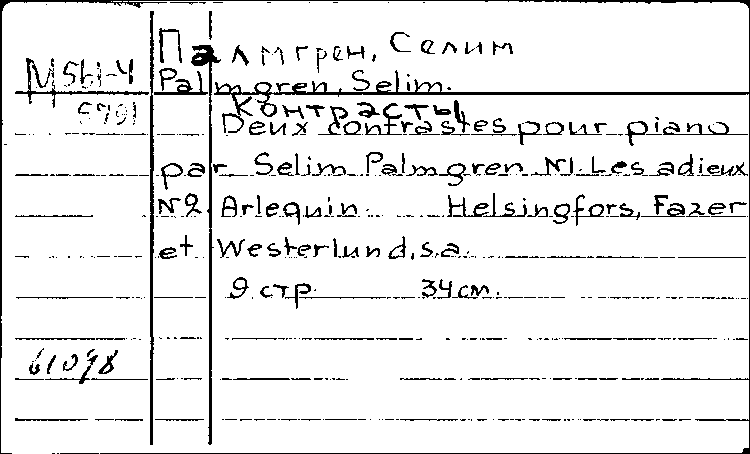 Палмгрен, Селим
М561-4
Palmgren, Selim.
5791
Контрасты
Deux contrastes pour piano
par Selim Palmgren N1. Les adieux
N2. Arlequin. Helsingfors, Fazer
et Westerlund, s.a.
9 стр. 34 см.
61098